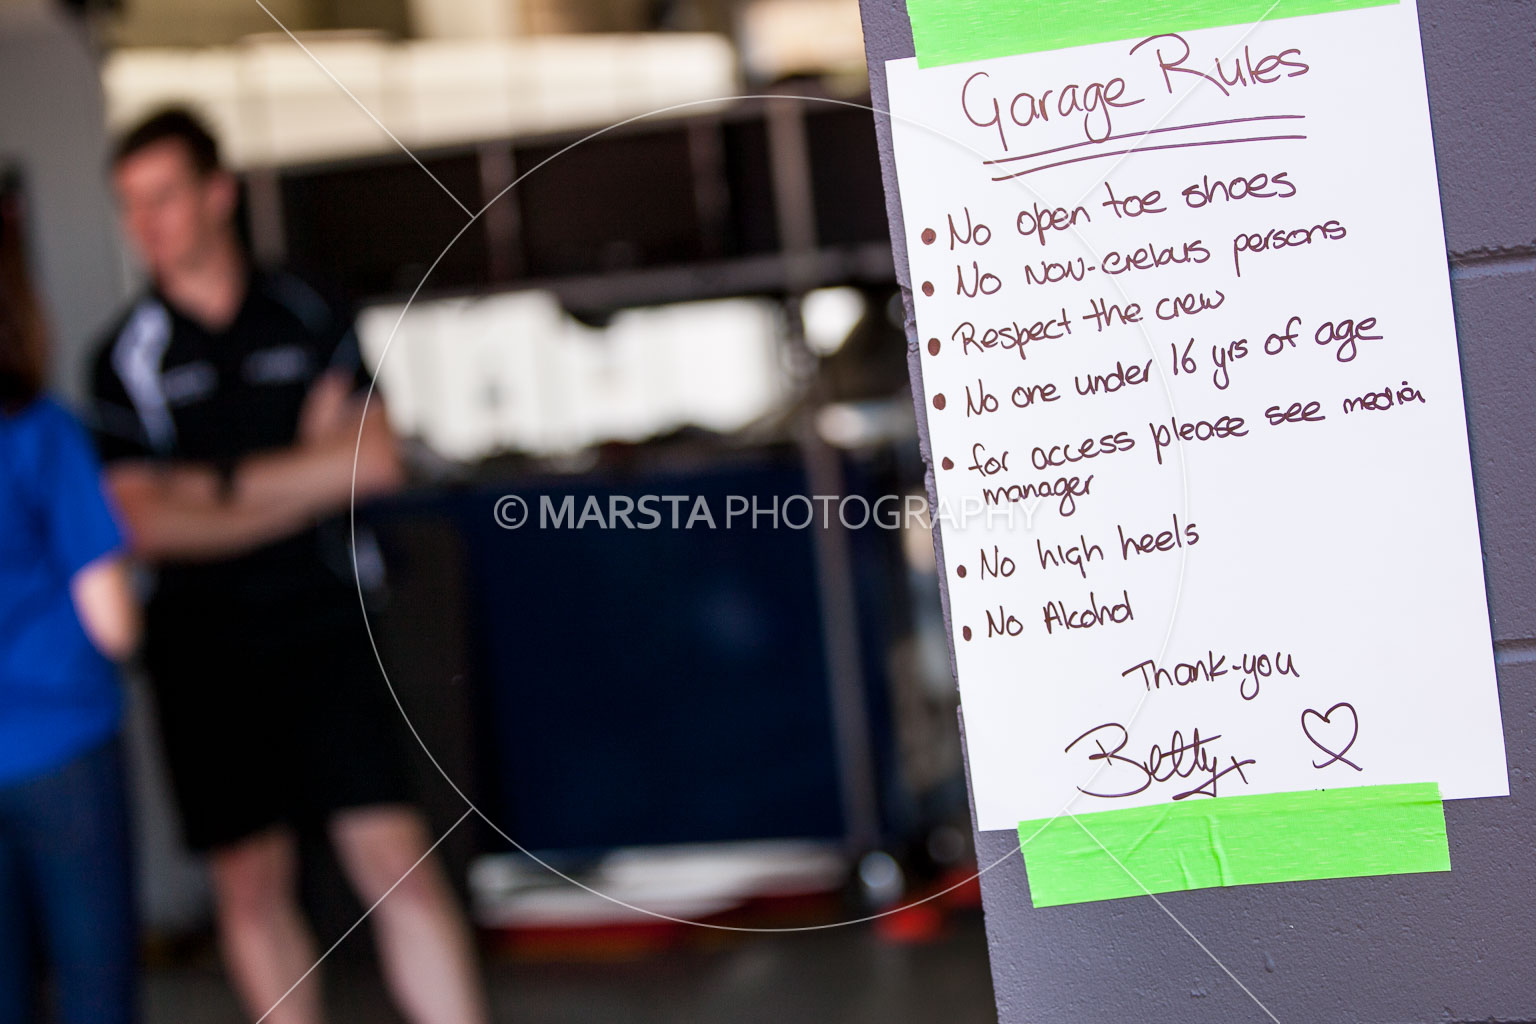 Garage Rules
• No open toe shoes
• No NON-crebus persons
• Respect the crew
• No one under 16 yrs of age
• for access please see media
manager
• No high heels
• No Alcohol
Thank-you
Betty x ♡
© MARSTA PHOTOGRAPHY